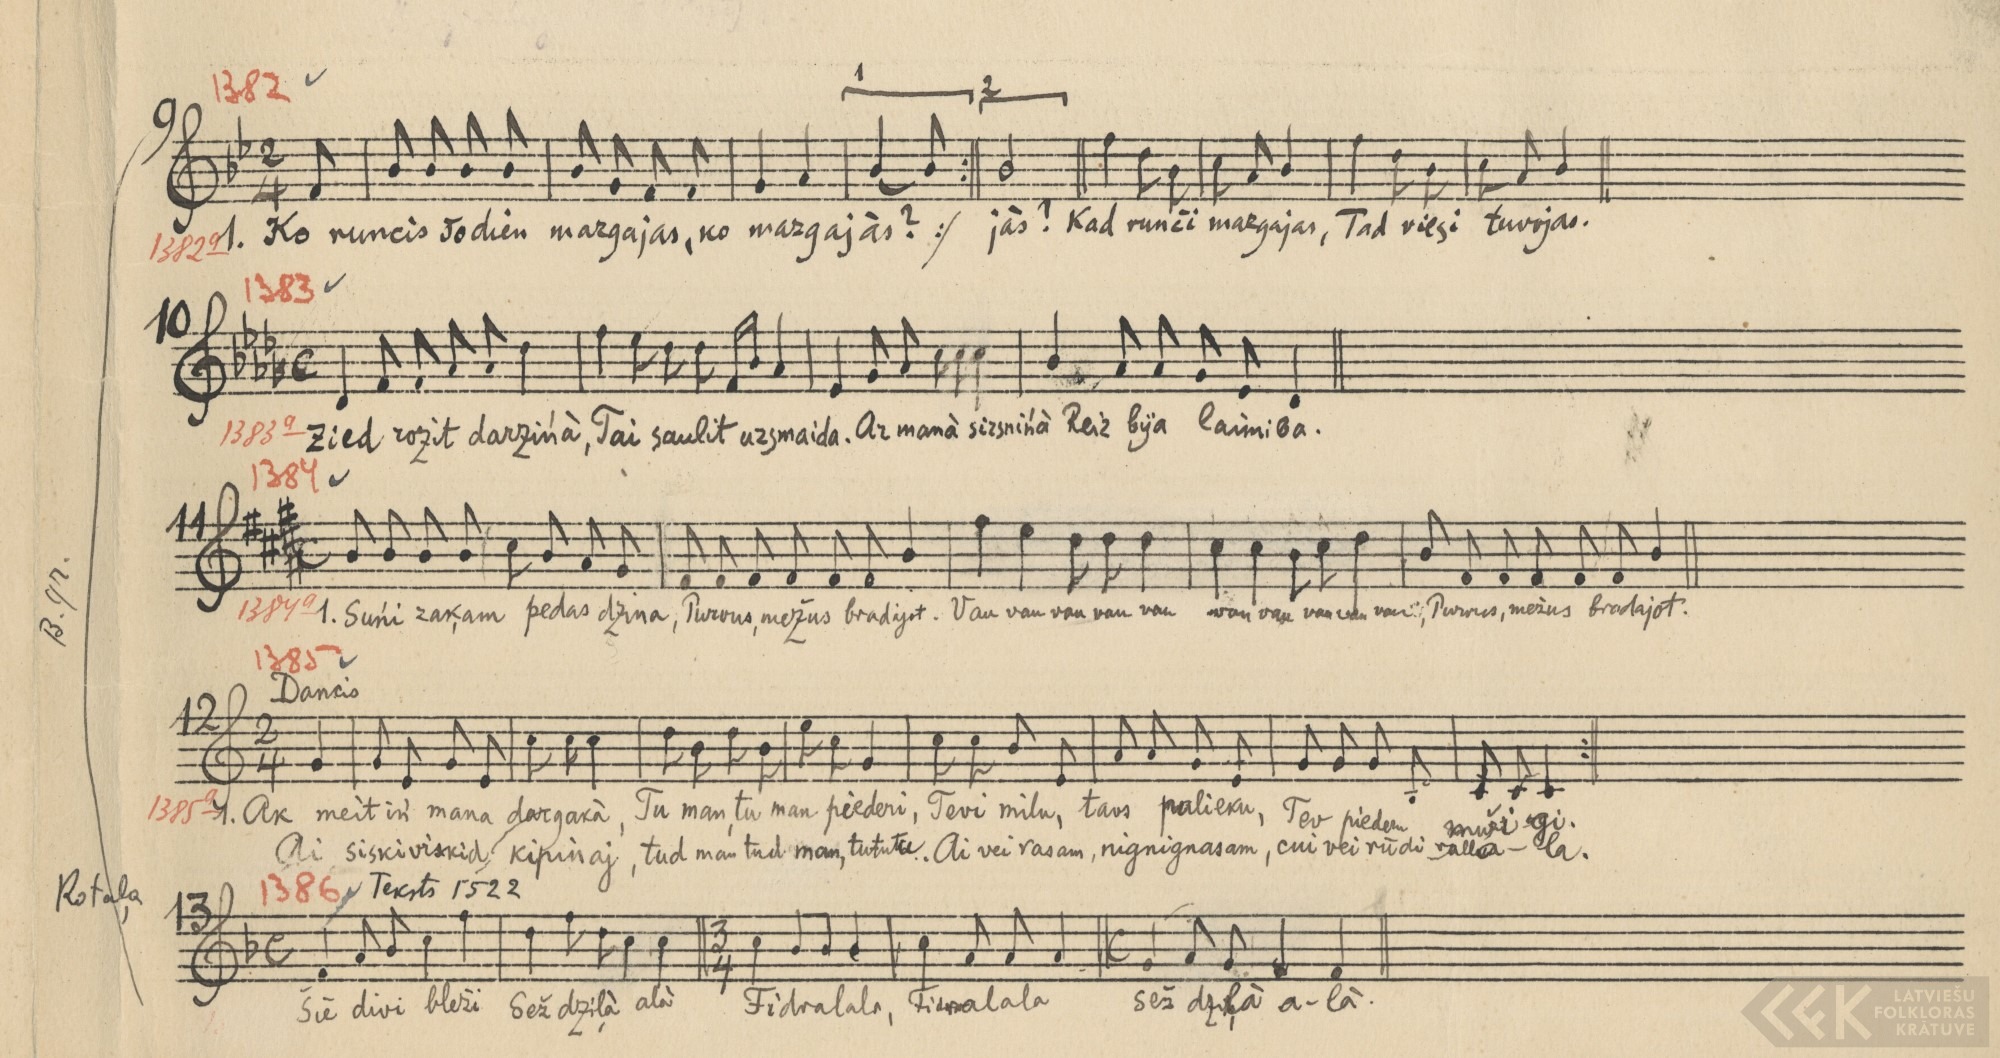 1382 ✓
1 2
9 2/4
1382a 1. Ko runcis šodien mazgajas, ko mazgajàs? :/ jàs? Kad runči mazgajas, Tad viesi tuvojas.
1383 ✓
10
1383a Zied rozit darziņà, Tai saulit uzsmaida. Ar manà sirsniņà Reiz bija laimiba.
1384 ✓
11
1384a 1. Suņi zaķam pedas dzina, Purvus, mežus bradajot. Vau vau vau vau vau vau vau vau vau vau, Purvus, mežus bradajot.
B. gr.
1385 ✓
Dancis
12 2/4
1385a 1. Ak meitiņ mana dargakà, Tu man, tu man piederi, Tevi milu, tavs palieku, Tev piederu mužigi.
Ai siskiviskid kipinaj, tud man tud man, tututu. Ai vei rasam, nignignasam, cui vei rūdi ralla-la.
Rotaļa
1386 ✓ Teksts 1522
13 3/4
Šie divi bleži Sež dziļà alà Fidralala, Fidralala sež dziļà a-là.
LATVIEŠU
FOLKLORAS
KRĀTUVE